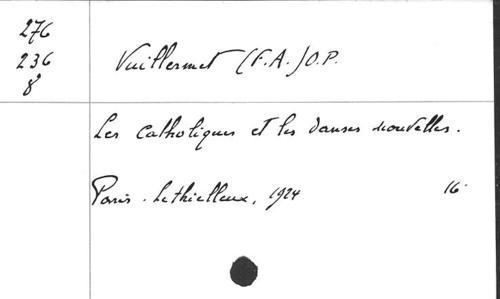 276
236
8
Vuillermet (F.A.) O.P.
Les Catholiques et les danses nouvelles.
Paris. Lethielleux, 1924 16.